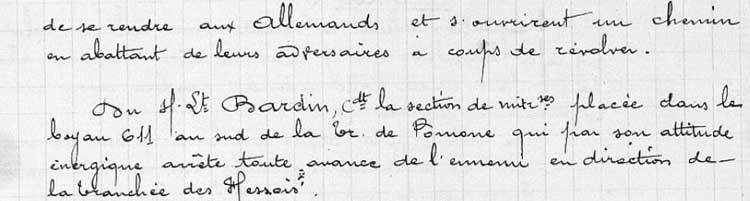 de se rendre aux Allemands et s'ouvrirent un chemin
en abattant de leurs adversaires à coups de révolver.
Du S. Lt Bardin, Cdt la section de mitrses placée dans le
boyau 611 au sud de la tr. de Pomone qui par son attitude
énergique arrête toute avance de l'ennemi en direction de
la tranchée des Hessois.